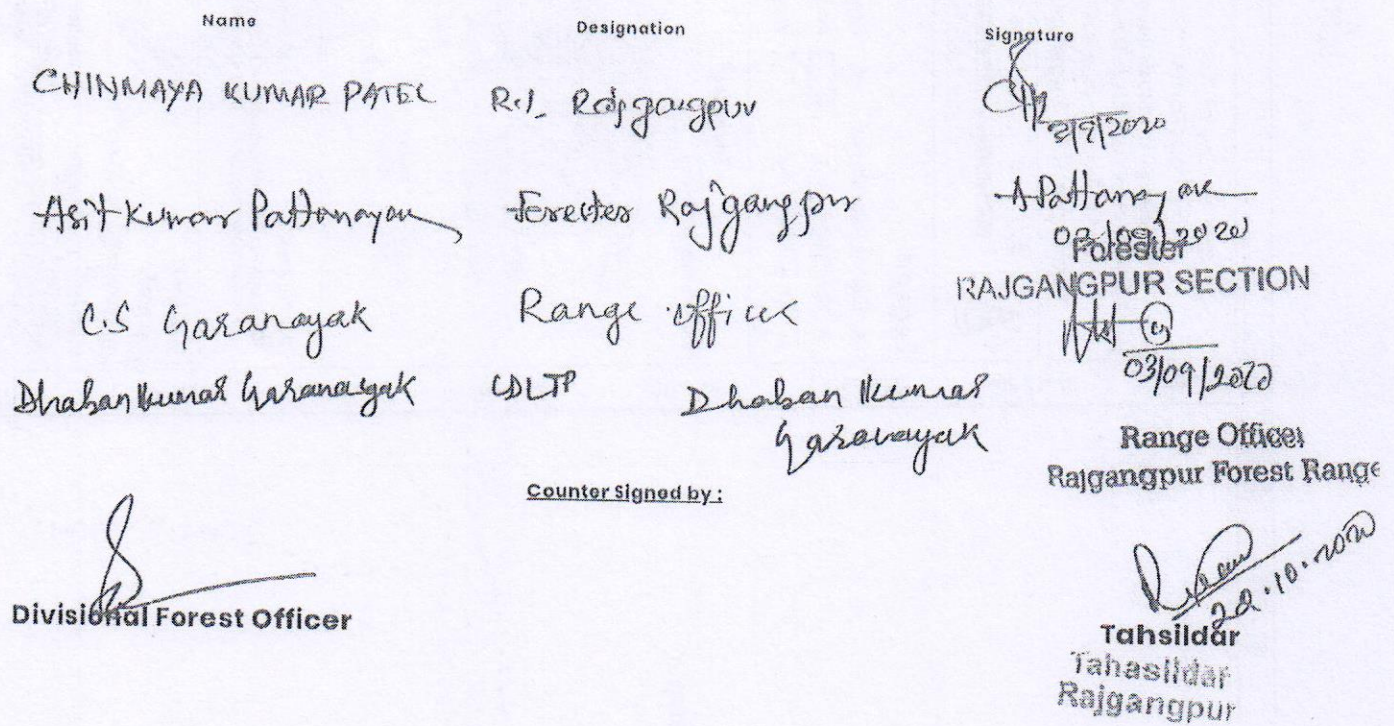 Name Designation Signature
CHINMAYA KUMAR PATEL R.I. Rajgangpur
2/9/2020
Asit Kumar Pattanayak Forester Rajgangpur A Pattanayak
02/09/2020
Forester
RAJGANGPUR SECTION
C.S Garanayak Range officer
03/09/2020
Dhaban Kumar Garanayak Dhaban Kumar
Garanayak
Range Officer
Rajgangpur Forest Range
Counter Signed by :
Divisional Forest Officer
10.2020
Tahsildar
Tahasildar
Rajgangpur